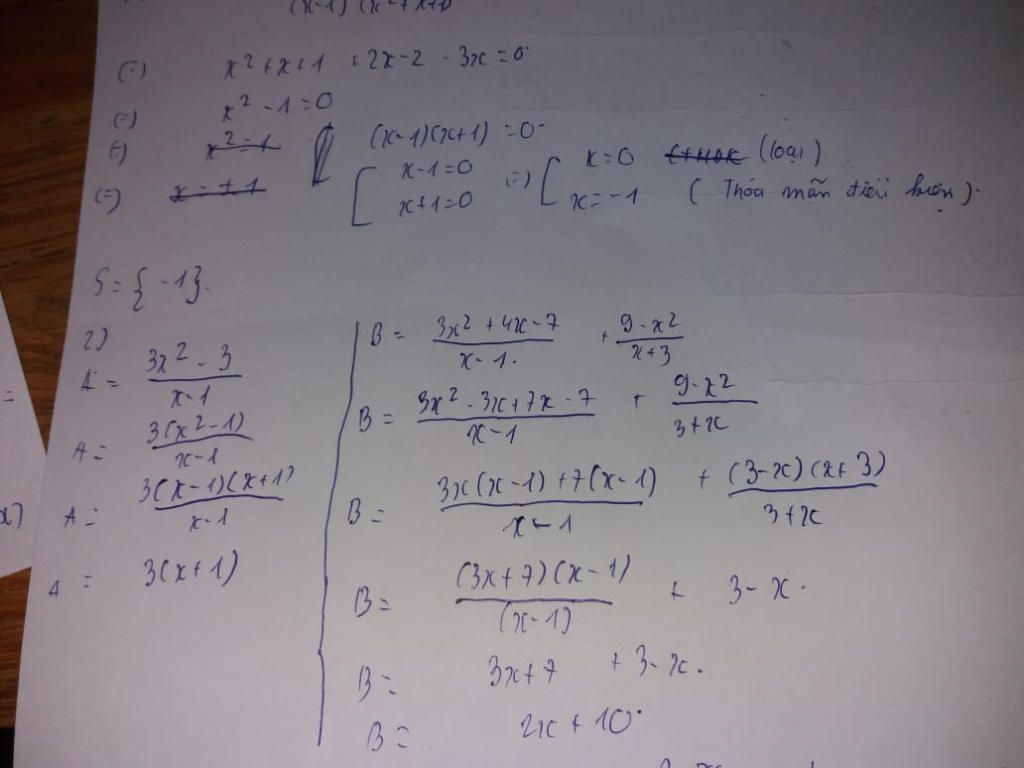 (x-1) (x²+x+1)
(=) x²+x+1 + 2x-2 - 3x = 0
(=) x² - 1 = 0
(=) x² = 1 (x-1)(x+1) = 0
x-1=0 (=) x=0 (loại)
(=) x = ±1 x+1=0 x=-1 (Thỏa mãn điều kiện).
S = { -1 }.
2)
A = 3x² - 3 / x-1
A = 3(x²-1) / x-1
A = 3(x-1)(x+1) / x-1
A = 3(x+1)
B = 3x² + 4x - 7 / x-1 + 9-x² / x+3
B = 3x² - 3x + 7x - 7 / x-1 + 9-x² / 3+x
B = 3x(x-1) + 7(x-1) / x-1 + (3-x)(x+3) / 3+x
B = (3x+7)(x-1) / (x-1) + 3-x.
B = 3x+7 + 3-x.
B = 2x + 10
x)
=